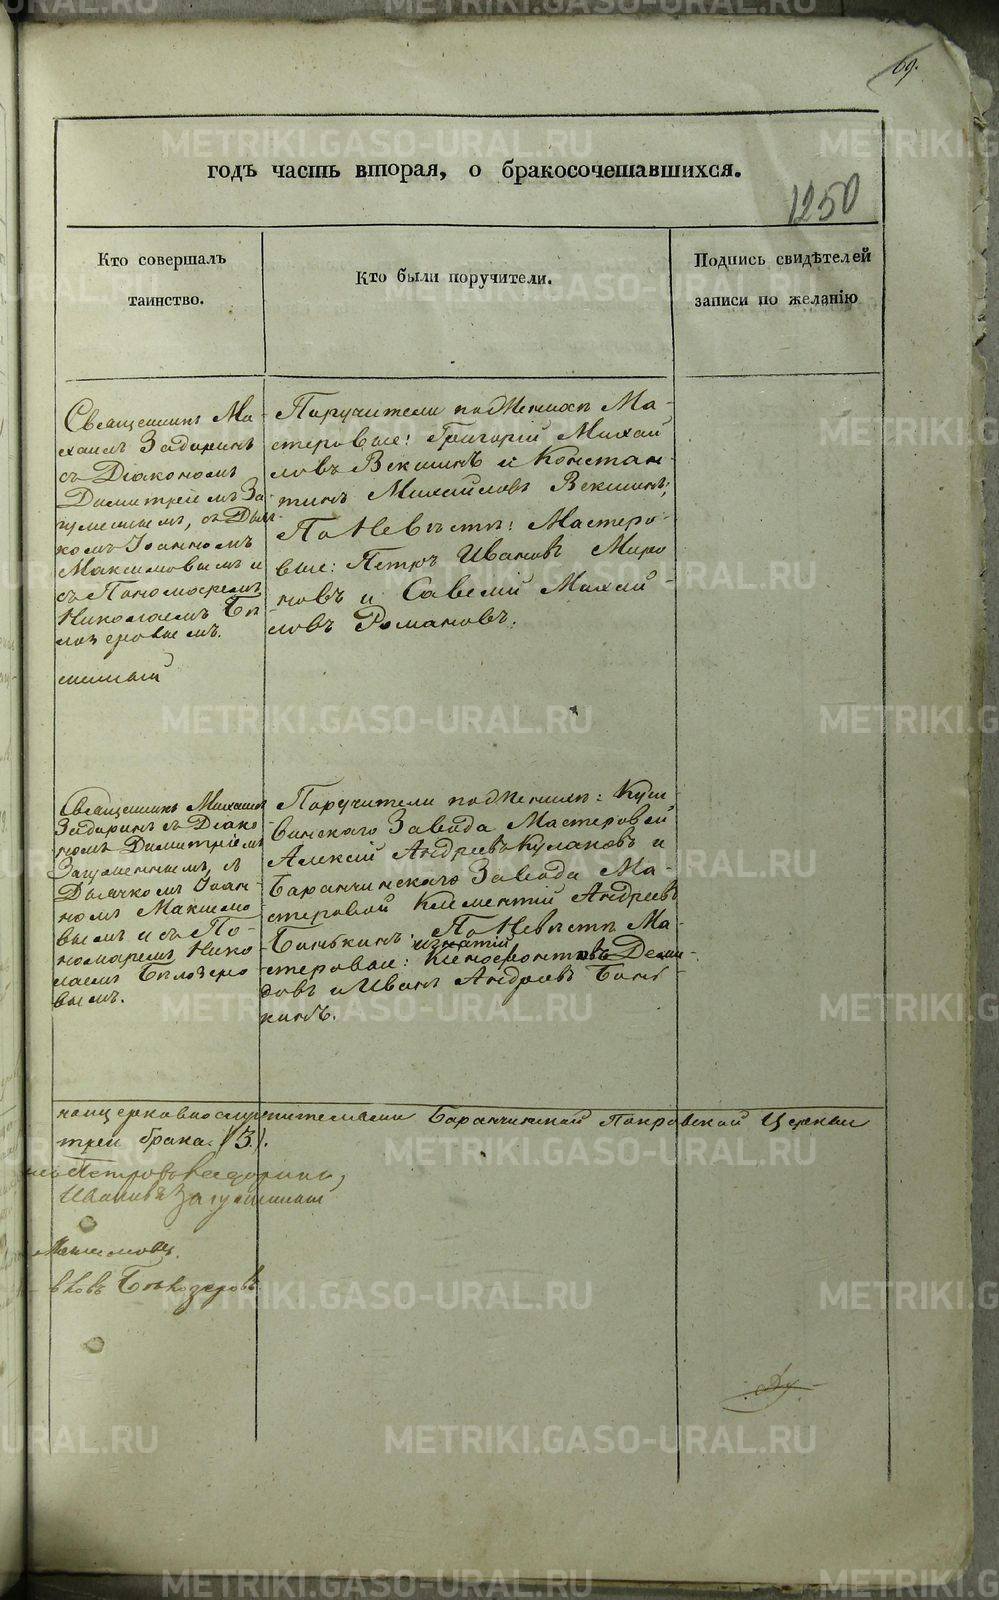 69.
годъ часть вторая, о бракосочетавшихся.
1250
Кто совершалъ
таинство.
Кто были поручители.
Подпись свидѣтелей
записи по желанію
Священникъ Ми-
хаилъ Задоринъ
съ Діакономъ
Димитріемъ За
гуменнымъ, съ Дьяч-
комъ Іоанномъ
Максимовымъ и
съ Пономаремъ
Николаемъ Бѣ
лозеровымъ.
Поручители по Женихѣ Ма-
стеровые: Григорій Михай
ловъ Векшинъ и Констан-
тинъ Михайловъ Векшинъ;
По Невѣстѣ: Мастеро-
вые: Петръ Ивановъ Миро
новъ и Савелій Михай-
ловъ Романовъ.
Священникъ Михаилъ
Задоринъ съ Діако
номъ Димитріемъ
Загуменнымъ, съ
Дьячкомъ Іоан-
номъ Максимо
вымъ и съ По-
номаремъ Нико
лаемъ Бѣлозеро
вымъ.
Поручители по Женихѣ: Куш-
винскаго Завода Мастеровой
Алексій Андреевъ Кулаковъ и
Баранчинскаго Завода Ма
стеровой Климентій Андреевъ
По Невѣстѣ Ма-
стеровые: Деми-
довъ и Иванъ Андреевъ
Баранчинской Покровской Церкви
три брака (3).
Петровъ Задоринъ,
Ивановъ Загуменный
Максимовъ.
Бѣлозеровъ
METRIKI.GASO-URAL.RU